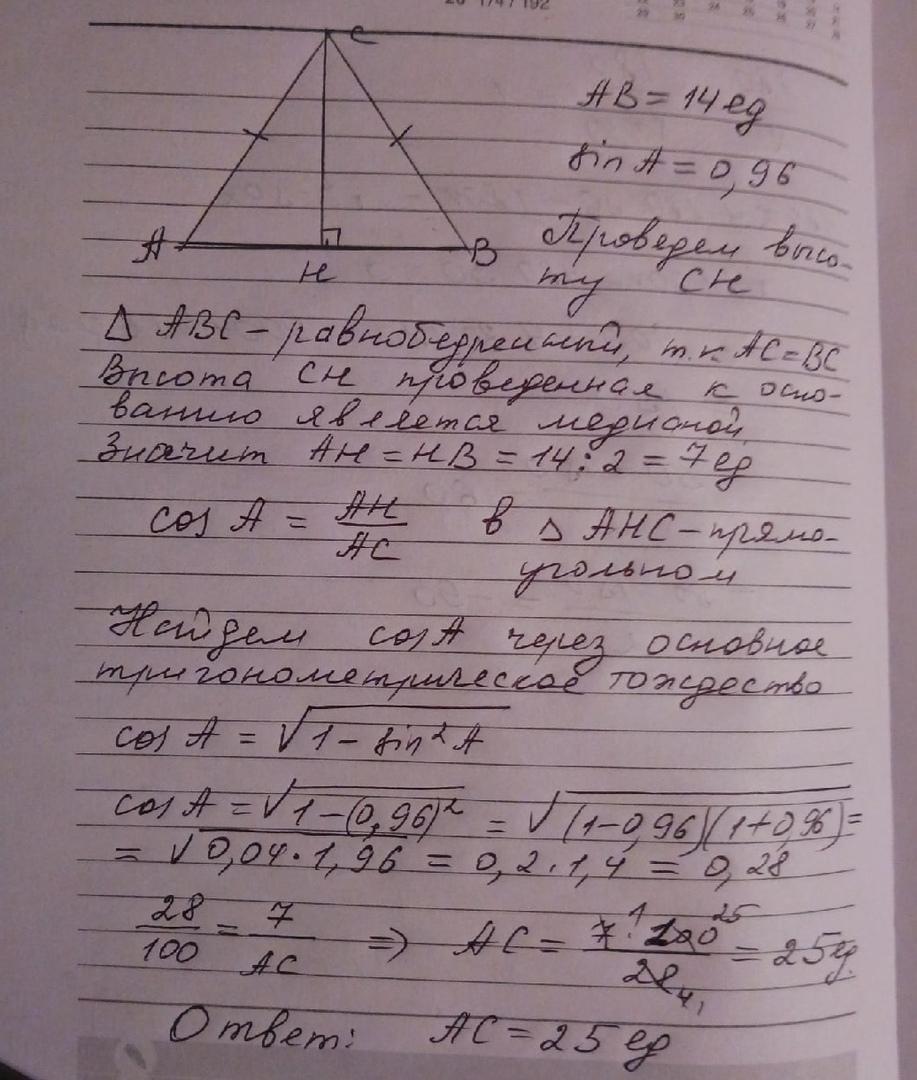 26 174 / 192
C
AB = 14 ед
sin A = 0,96
A
H
B
Проведем высо-
ту CH
Δ ABC – равнобедренный, т.к AC = BC
Высота CH проведенная к осно-
ванию является медианой.
Значит AH = HB = 14 : 2 = 7 ед
cos A = AH / AC в Δ AHC – прямо-
угольном
Найдем cos A через основное
тригонометрическое тождество
cos A = √(1 – sin² A)
cos A = √(1 – (0,96)²) = √((1–0,96)(1+0,96)) =
= √(0,04 · 1,96) = 0,2 · 1,4 = 0,28
28/100 = 7/AC ⇒ AC = 7¹ · 100²⁵ / 28₄₁ = 25 ед.
Ответ: AC = 25 ед